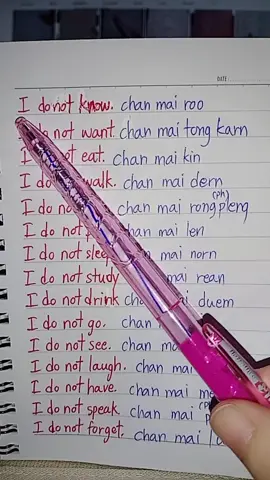 DATE
I do not know. chan mai roo
do not want. chan mai tong karn
I not eat. chan mai kin
I do walk. chan mai dern
I do no chan mai rong pleng (ph)
I do not chan mai len
I do not slee mai norn
I do not study mai rean
I do not drink cha mai duem
I do not go. chan
I do not see. chan
I do not laugh. chan mai
I do not have. chan mai
I do not speak. chan mai
I do not forget. chan mai